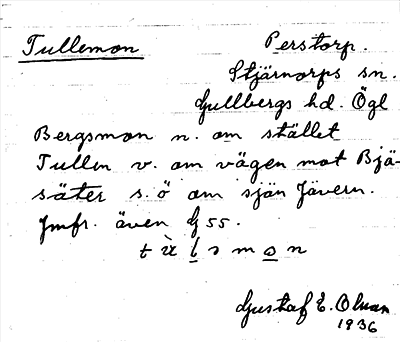 Tullemon
Perstorp.
Stjärnorps sn.
Gullbergs hd. Ögl
Bergsmon n. om stället
Tullen v. om vägen mot Bjä-
säter s.ö om sjön Jävern.
Jmfr. även G 55.
t ù l s m o n
Gustaf E. Olsson
1936